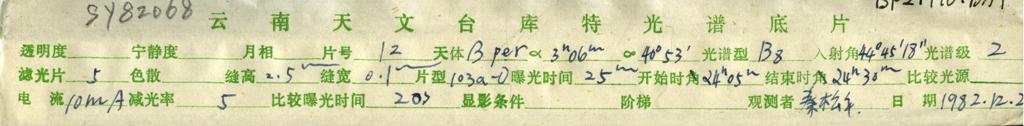 SY82068
云南天文台库特光谱底片
透明度 宁静度 月相 片号 12 天体 β per α 3ʰ06ᵐ ∝ 40°53' 光谱型 B8 入射角 44°45'18" 光谱级 2
滤光片 5 色散 缝高 2.5ᵐᵐ 缝宽 0.1ᵐᵐ 片型 103a-O 曝光时间 25ᵐ 开始时角 24ʰ05ᵐ 结束时角 24ʰ30ᵐ 比较光源
电流 10mA 减光率 5 比较曝光时间 20s 显影条件 阶梯 观测者 日期 1982.12.2